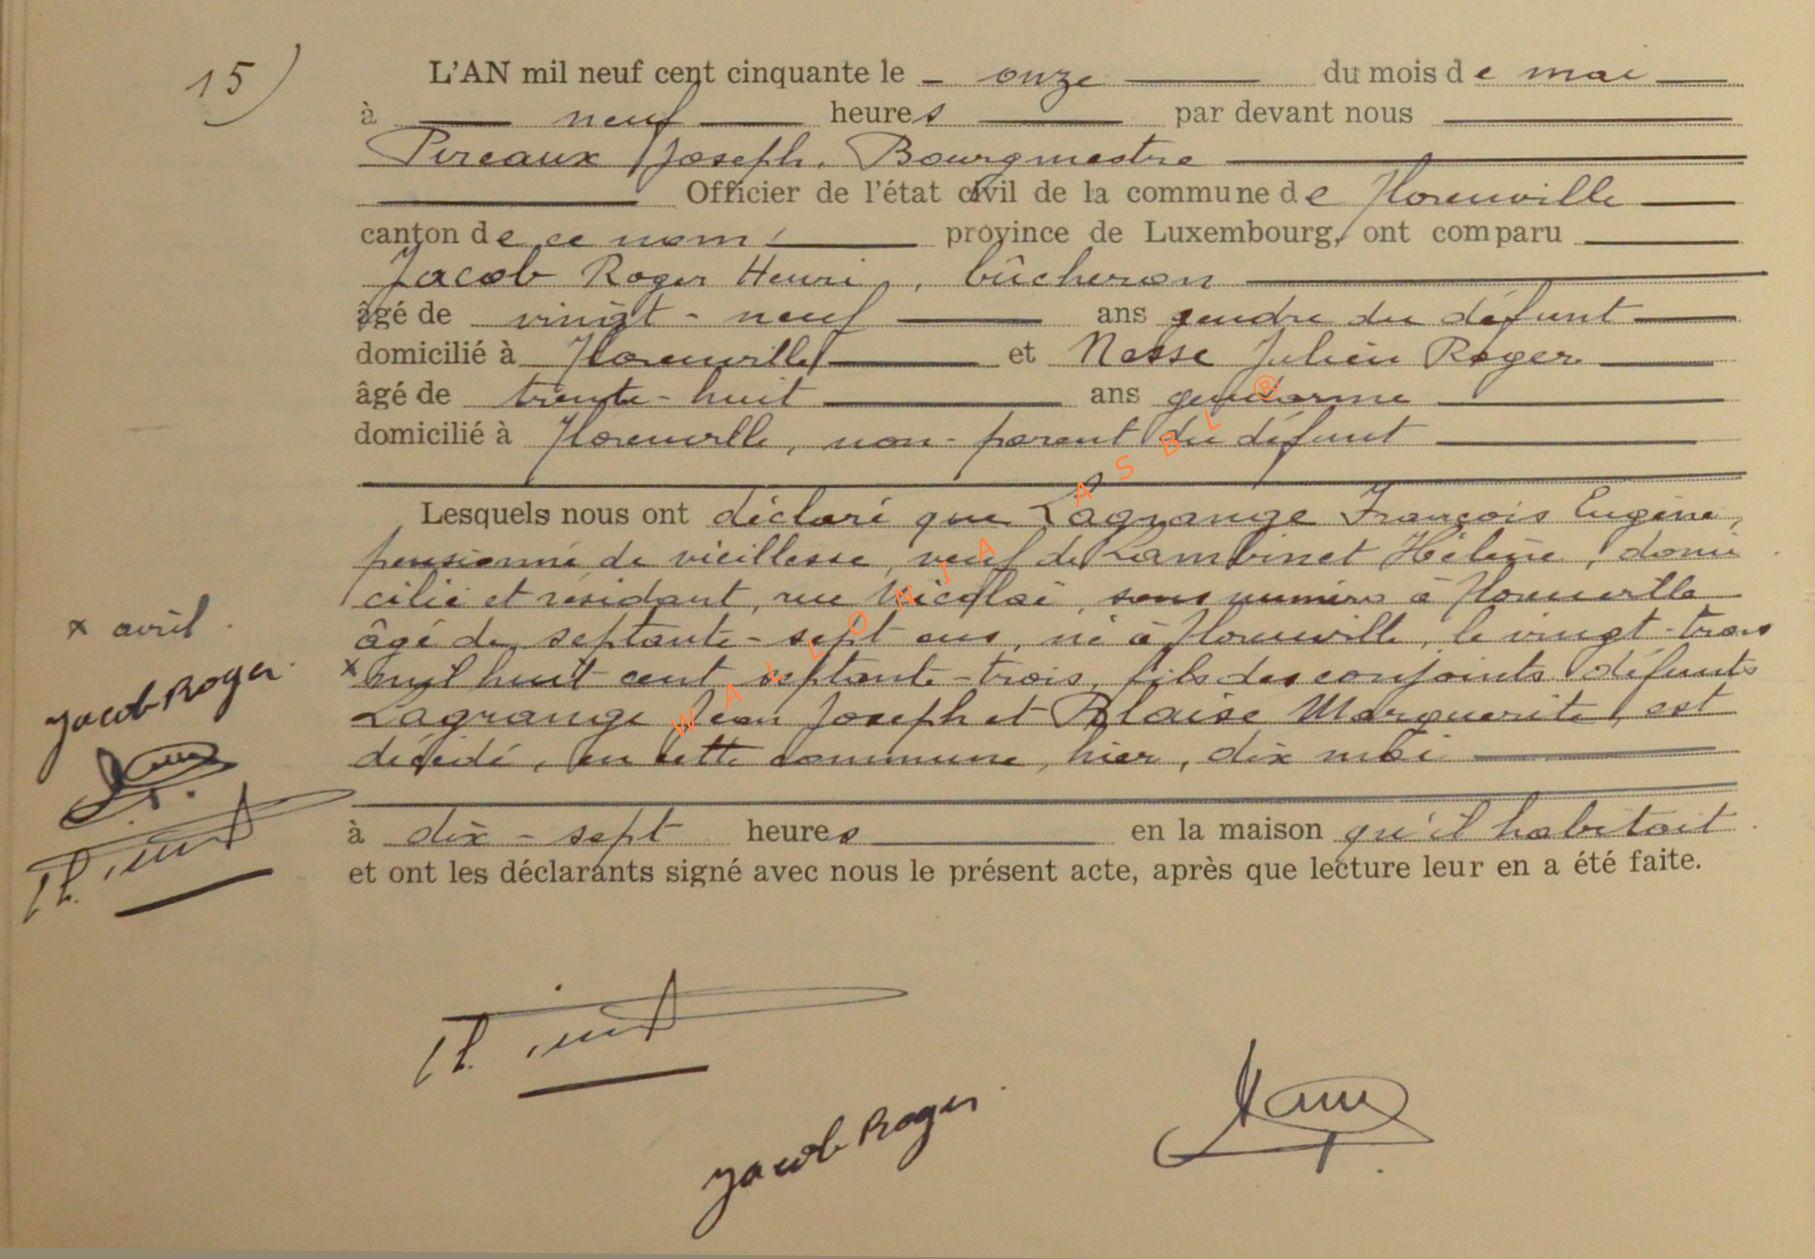 15)
L'AN mil neuf cent cinquante le onze du mois de mai
à neuf heures par devant nous
Pireaux Joseph, Bourgmestre
Officier de l'état civil de la commune de Florenville
canton de ce nom, province de Luxembourg, ont comparu
Jacob Roger Henri, bûcheron
âgé de vingt-neuf ans gendre du défunt
domicilié à Florenville et Nesse Julien Roger
âgé de trente-huit ans gendarme
domicilié à Florenville, non-parent du défunt
Lesquels nous ont déclaré que Lagrange François Eugène,
pensionné de vieillesse, veuf de Lambinet Hélène, domi
cilié et résidant, rue Nicolaï, sans numéro à Florenville
âgé de septante-sept ans, né à Florenville, le vingt-trois
x mil huit cent septante-trois, fils des conjoints défunts
Lagrange Jean Joseph et Blaise Marguerite, est
décédé, en cette commune, hier, dix mai
à dix-sept heures en la maison qu'il habitait
et ont les déclarants signé avec nous le présent acte, après que lecture leur en a été faite.
x avril.
Jacob Roger
Jacob Roger
WALLONIA ASBL ®